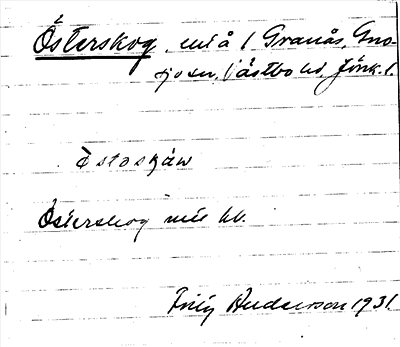 Österskog, utå / Granås, Gno-
sjö sn, Västbo hd, Jönk. l.
Östoskåw
Österskog
Fritz Anderson 1931